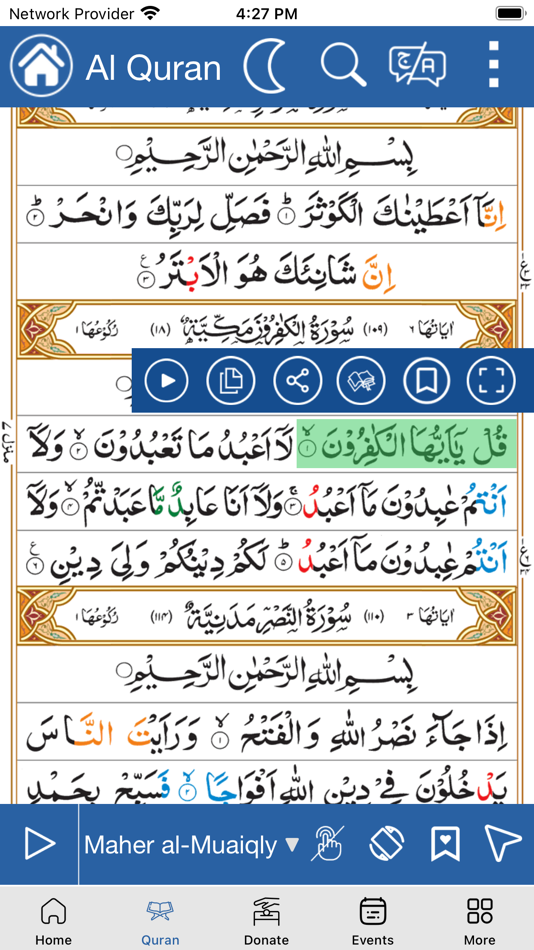 Network Provider 4:27 PM
Al Quran
بِسْمِ اللهِ الرَّحْمٰنِ الرَّحِيْمِ
اِنَّاۤ اَعْطَيْنٰكَ الْكَوْثَرَ ؕ﴿۱﴾ فَصَلِّ لِرَبِّكَ وَانْحَرْ ؕ﴿۲﴾
اِنَّ شَانِئَكَ هُوَ الْاَبْتَرُ ﴿۳﴾
اٰيَاتُهَا ۶ (۱۰۹) سُوْرَةُ الْكٰفِرُوْنَ مَكِّيَّةٌ (۱۸) رُكُوْعُهَا ۱
قُلْ يٰۤاَيُّهَا الْكٰفِرُوْنَ ۙ﴿۱﴾ لَاۤ اَعْبُدُ مَا تَعْبُدُوْنَ ۙ﴿۲﴾ وَلَاۤ
منزل ۷
اَنْتُمْ عٰبِدُوْنَ مَاۤ اَعْبُدُ ۚ﴿۳﴾ وَلَاۤ اَنَا عَابِدٌ مَّا عَبَدْتُّمْ ۙ﴿۴﴾ وَلَاۤ
اَنْتُمْ عٰبِدُوْنَ مَاۤ اَعْبُدُ ؕ﴿۵﴾ لَكُمْ دِيْنُكُمْ وَلِيَ دِيْنِ ﴿۶﴾
اٰيَاتُهَا ۳ (۱۱۰) سُوْرَةُ النَّصْرِ مَدَنِيَّةٌ (۱۱۴) رُكُوْعُهَا ۱
بِسْمِ اللهِ الرَّحْمٰنِ الرَّحِيْمِ
اِذَا جَآءَ نَصْرُ اللهِ وَالْفَتْحُ ۙ﴿۱﴾ وَرَاَيْتَ النَّاسَ
يَدْخُلُوْنَ فِيْ دِيْنِ اللهِ اَفْوَاجًا ۙ﴿۲﴾ فَسَبِّحْ بِحَمْدِ
Maher al-Muaiqly
Home Quran Donate Events More